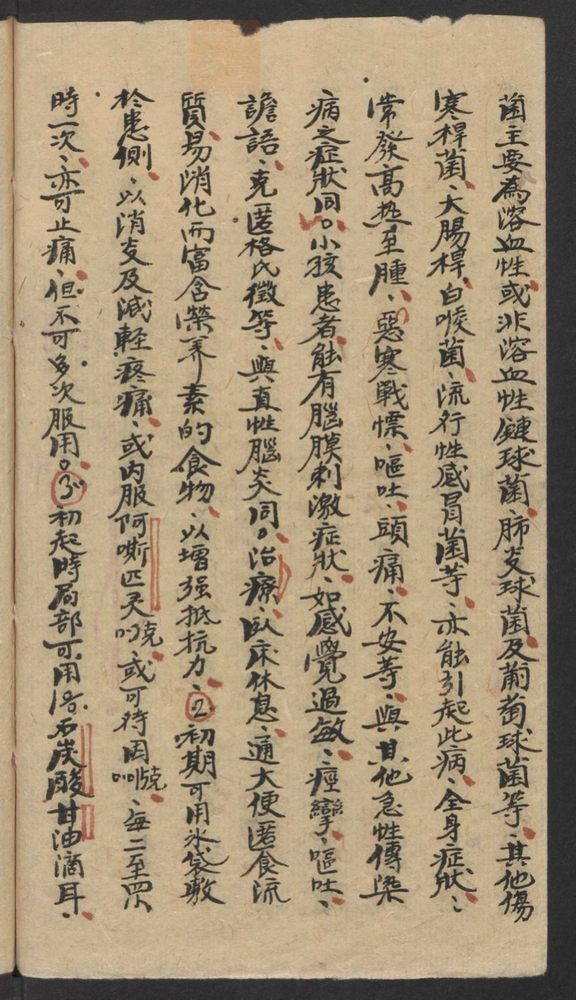 菌主要為溶血性或非溶血性鏈球菌、肺炎球菌及葡萄球菌等、其他傷
寒桿菌、大腸桿、白喉菌、流行性感冒菌等、亦能引起此病、全身症狀、
常發高热至腫、惡寒戰慄、嘔吐、頭痛、不安等、與其他急性傳染
病之症狀同。小孩患者、能有腦膜刺激症狀、如感覺過敏、痙攣、嘔吐、
譫語、克匿格氏徵等、與真性腦炎同。治療、臥床休息、通大便、匿食流
質、易消化而富含榮养素的食物、以增强抵抗力、②初期可用氷袋敷
於患側、以消炎及減軽疼痛、或内服阿嘶匹灵克、或可待因、每二至四小
時一次、亦可止痛、但不可多次服用。③初起時局部可用石炭酸甘油滴耳、